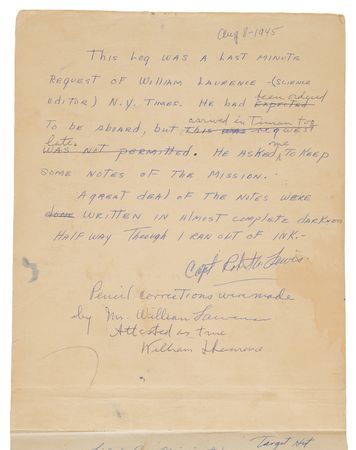 Aug 8-1945
This Log was a last minute
request of William Laurence - (Science
editor) N.Y. Times. He had expected been ordered
to be aboard, but this was request arrived in Tinian too
late was not permitted. He asked me to keep
some notes of the mission.-
A great deal of the notes were
done written in almost complete darkness
Half way through I ran out of ink.-
Capt Robt A Lewis-
Pencil corrections were made
by Mr. William Laurence
Attested as true
William L Laurence
Target Hit